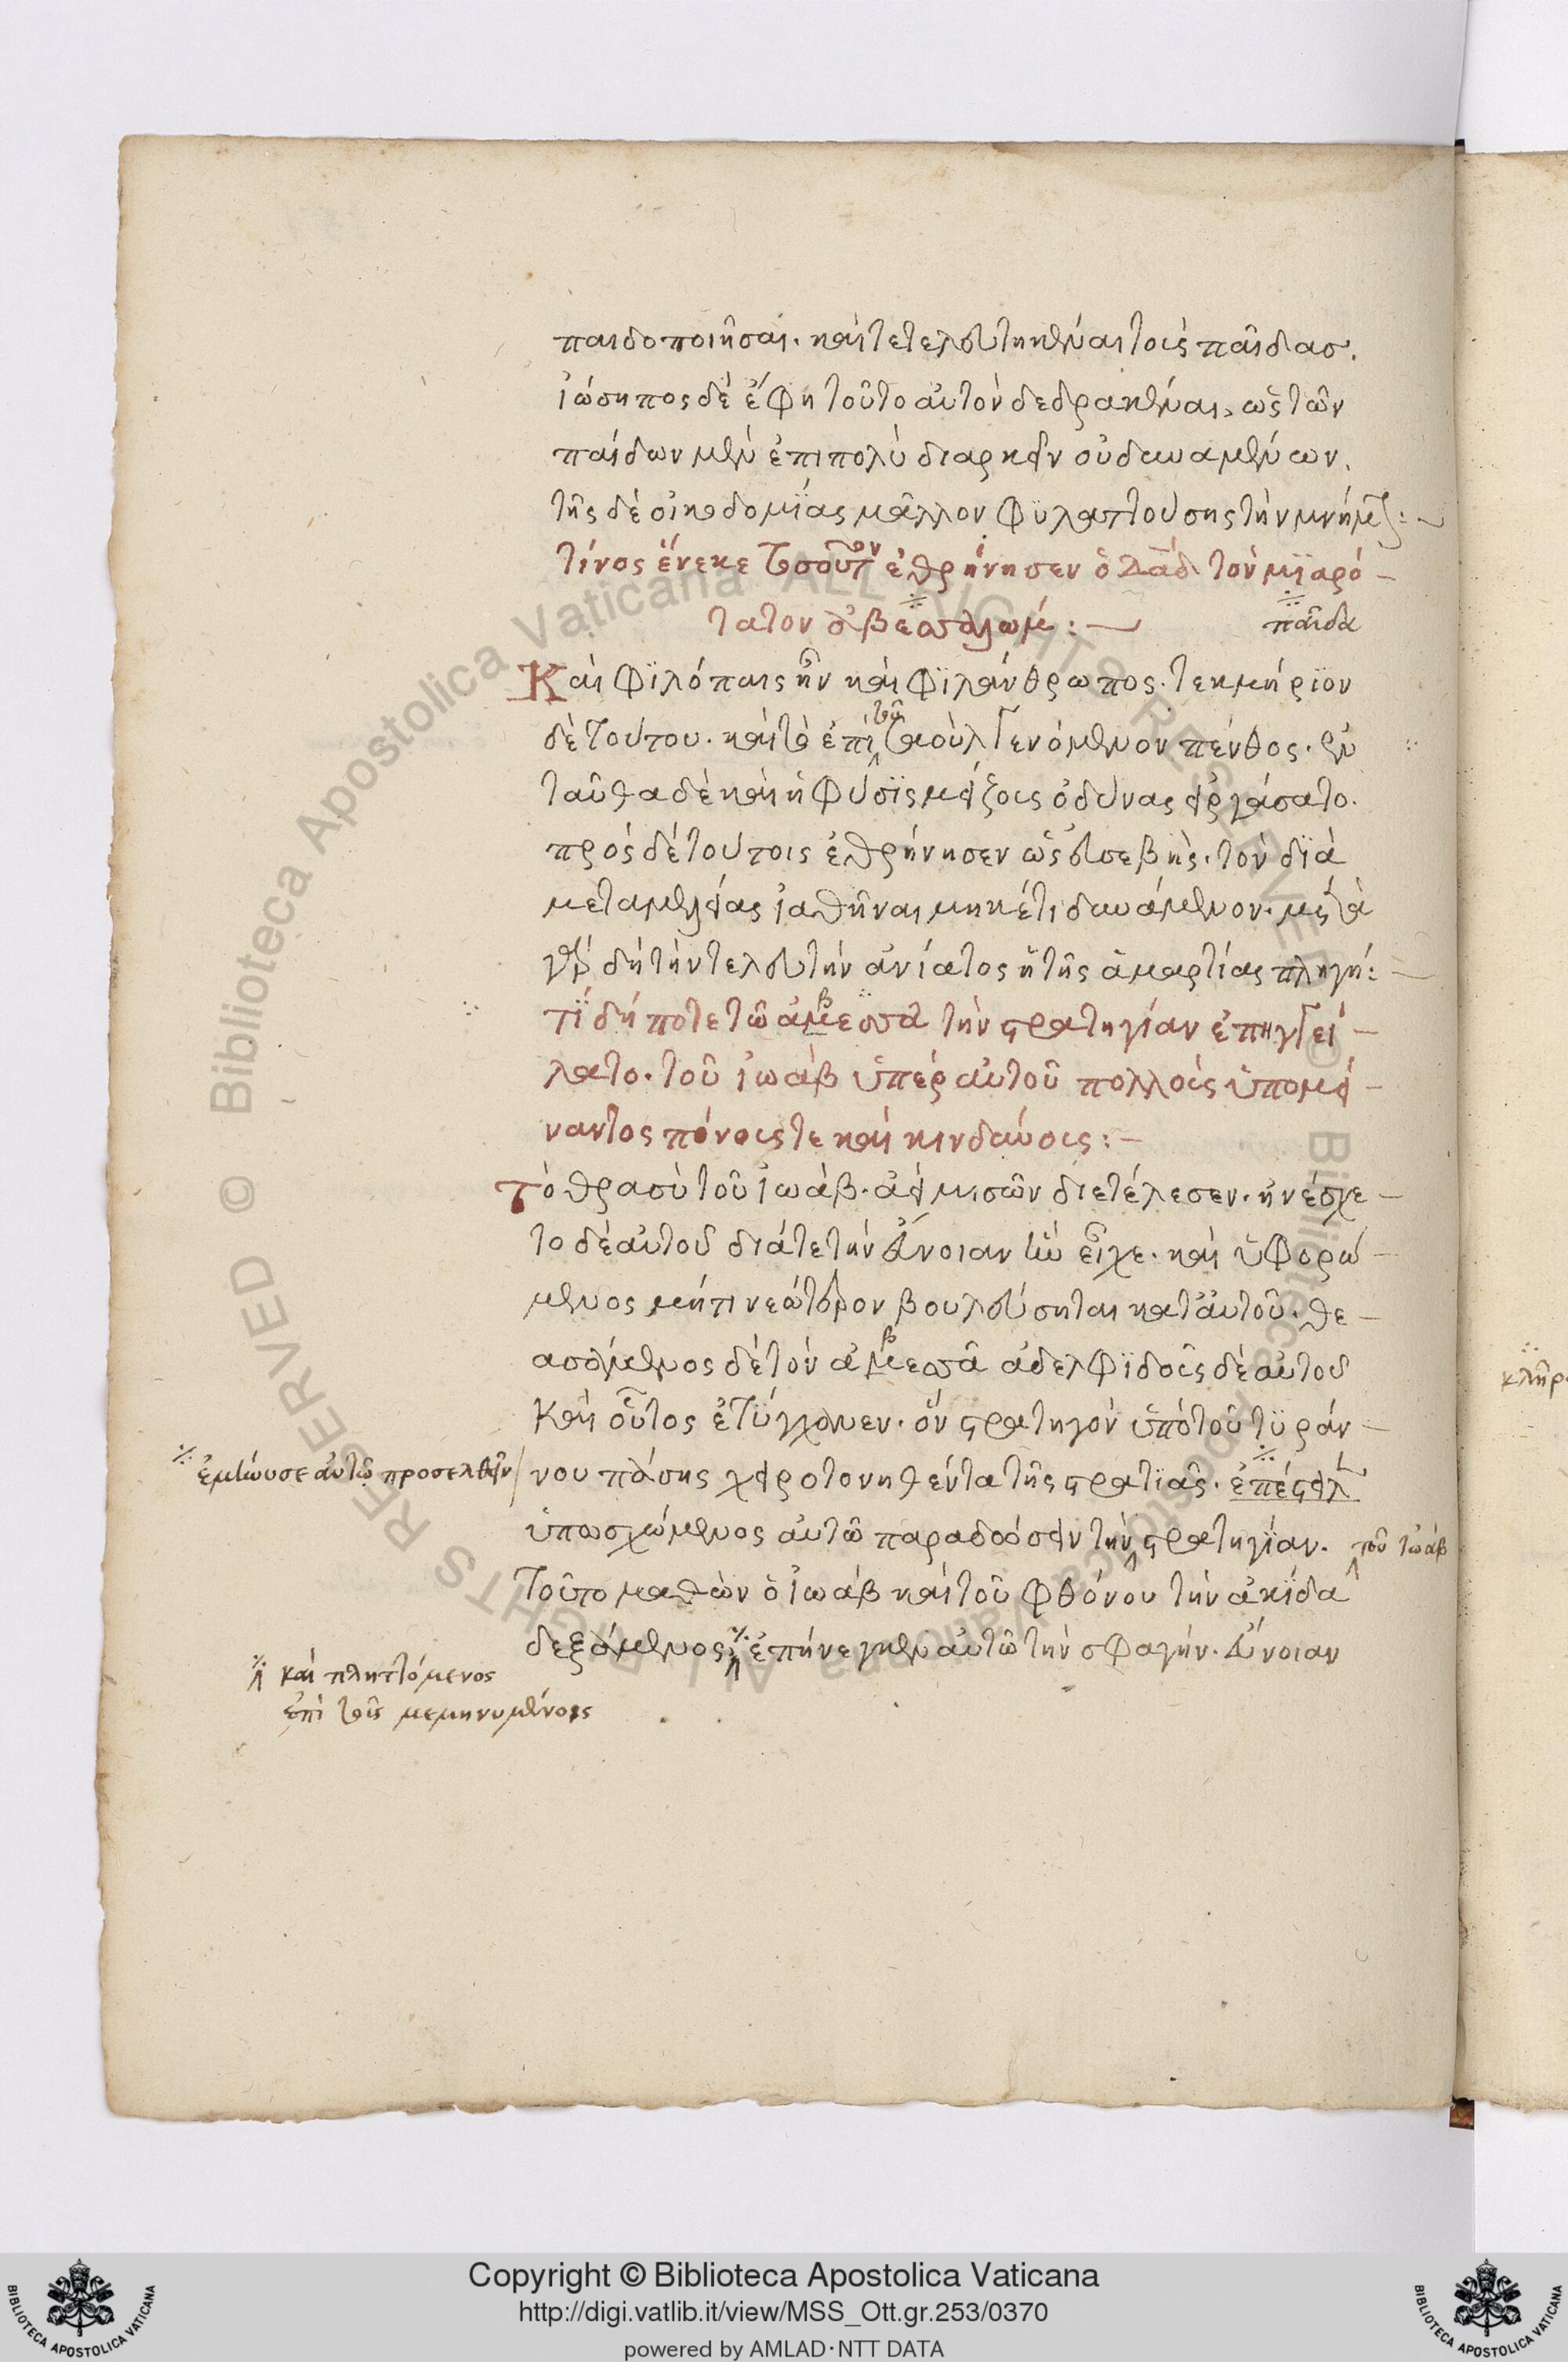 παιδοποιῆσαι. καὶ τετελευτηκέναι τοὶς παῖδασ.
ἰώσηπος δὲ ἔφη τοῦτο αὐτὸν δεδρακέναι, ὡς τῶν
παίδων μὲν ἐπιπολὺ διαρκεῖν οὐ δυναμένων.
τῆς δὲ οἰκοδομΐας μᾶλλον φϋλαττούσης τὴν μνήμην:~
τίνος ἕνεκε τοσοῦτον ἐθρήνησεν ὁ Δᾱδ τὸν μϊαρό-
τατον ἀβεσαλωμ:— παῖδα
Καὶ φϊλόπαις ἦν καὶ φϊλάνθρωπος. τεκμήρϊον
δὲ τούτου. καὶ τὸ ἐπὶ τῶ σαοὺλ γενόμενον πένθος. ἐν
ταῦθα δὲ καὶ ἡ φύσϊς μείζοις ὀδύνας εἰργάσατο.
πρὸς δὲ τούτοις ἐθρήνησεν ὡς εὐσεβὴς. τὸν δϊὰ
μεταμελείας ἰαθῆναι μηκέτι δυνάμενον. μετὰ
γὰρ δὴ τὴν τελευτὴν ἀνίατος ἡ τῆς ἁμαρτίας πληγή:
τΐ δή ποτε τῶ ἀμεσσᾶ τὴν στρατηγίαν ἐπηγγεί-
β
λατο. τοῦ ἰωὰβ ὑπὲρ αὐτοῦ πολλοὶς ὑπομεί-
ναντος πόνοις τε καὶ κινδύνοις:-
Τὸ θρασὺ τοῦ ἰωὰβ. ἀεὶ μισῶν διετέλεσεν. ἠνέσχε-
το δὲ αὐτοῦ διά τε τὴν εὔνοιαν ἣν εἶχε. καὶ ὑφορώ-
μενος μήτι νεώτερον βουλεύσηται κατ' αὐτοῦ. θε-
ασάμενος δὲ τὸν ἀμεσσᾶ ἀδελφϊδοῖς δὲ αὐτοῦ
β
Καὶ οὗτος ἐτύγχανεν. ὃν στρατηγὸν ὑπὸ τοῦ τϋράν-
νου πάσης χειροτονηθέντα τῆς στρατϊᾶς. ἐπέστειλ
ἐμήνυσε αὐτῷ προσελθεῖν
ὑποσχόμενος αὐτῶ παραδώσειν τὴν στρατηγΐαν. τοῦ ἰωάβ
Τοῦτο μαθὼν ὁ ἰωὰβ καὶ τοῦ φθόνου τὴν ἀκίδα
δεξάμενος ἐπήνεγκεν αὐτῶ τὴν σφαγὴν. εὔνοιαν
καὶ πληττόμενος
ἐπὶ τοῖς μεμηνυμένοις
κλῆρ
Copyright © Biblioteca Apostolica Vaticana
http://digi.vatlib.it/view/MSS_Ott.gr.253/0370
powered by AMLAD·NTT DATA
BIBLIOTECA APOSTOLICA VATICANA
BIBLIOTECA APOSTOLICA VATICANA
Biblioteca Apostolica Vaticana ALL RIGHTS RESERVED © Biblioteca Apostolica Vaticana ALL RIGHTS RESERVED ©